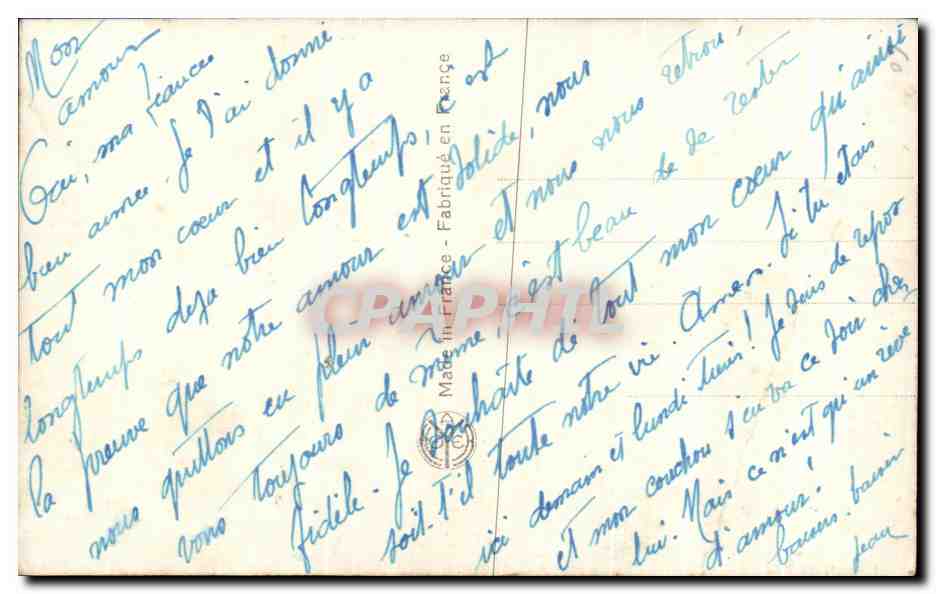 Mon
amour
Oui, ma fiancée
bien aimée. Je t'ai donné
tout mon coeur et il y a
longtemps déjà bien longtemps, c'est
la preuve que notre amour est solide, nous
nous quittons en plein amour et nous nous retrou-
vons toujours de même, c'est beau de rester
fidèle. Je souhaite de tout mon coeur qu'ainsi
soit-t'il toute notre vie. Amen. Si tu étais
ici demain et lundi Je suis de repos
et mon couchou s'en va ce soir chez
lui. Mais ce n'est qu'un rêve
d'amour!
baisers. baiser
Jean
Made in France - Fabriqué en France
CPAPHIL